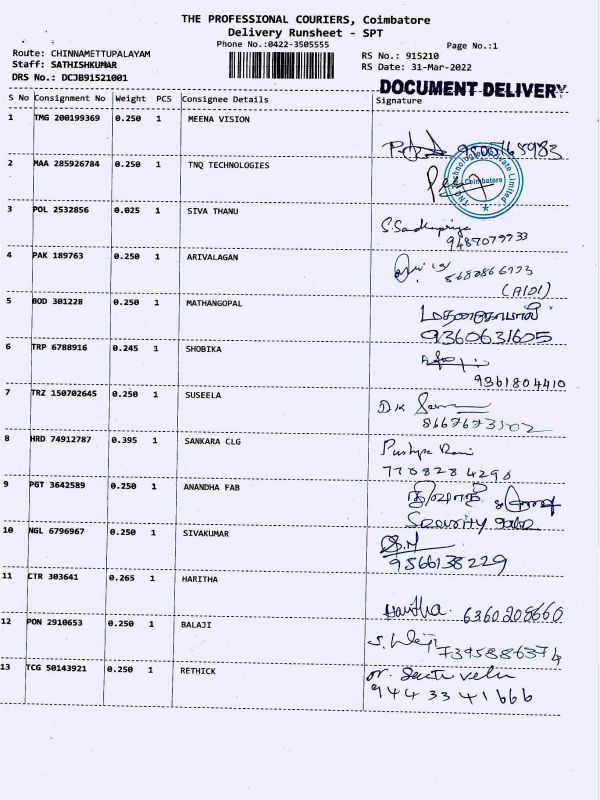 THE PROFESSIONAL COURIERS, Coimbatore
Delivery Runsheet - SPT
Phone No.:0422-3505555
Page No.:1
Route: CHINNAMETTUPALAYAM
RS No.: 915210
Staff: SATHISHKUMAR
RS Date: 31-Mar-2022
DRS No.: DCJB91521001
DOCUMENT DELIVERY
S No Consignment No Weight PCS Consignee Details Signature
1 TMG 200199369 0.250 1 MEENA VISION
2 MAA 285926784 0.250 1 TNQ TECHNOLOGIES
TNQ Technologies Private Limited
Coimbatore
3 POL 2532856 0.025 1 SIVA THANU
9487079933
4 PAK 189763 0.250 1 ARIVALAGAN
(AIDI)
5 BOD 301228 0.250 1 MATHANGOPAL
9360631605
6 TRP 6788916 0.245 1 SHOBIKA
9361804410
7 TRZ 150702645 0.250 1 SUSEELA
D.K
8 HRD 74912787 0.395 1 SANKARA CLG
Pushpa Rani
7708284290
9 PGT 3642589 0.250 1 ANANDHA FAB
Security
10 NGL 6796967 0.250 1 SIVAKUMAR
9566138229
11 CTR 303641 0.265 1 HARITHA
Haritha. 6360208660
12 PON 2910653 0.250 1 BALAJI
S. Balaji 7395886374
13 TCG 50143921 0.250 1 RETHICK
9443341666